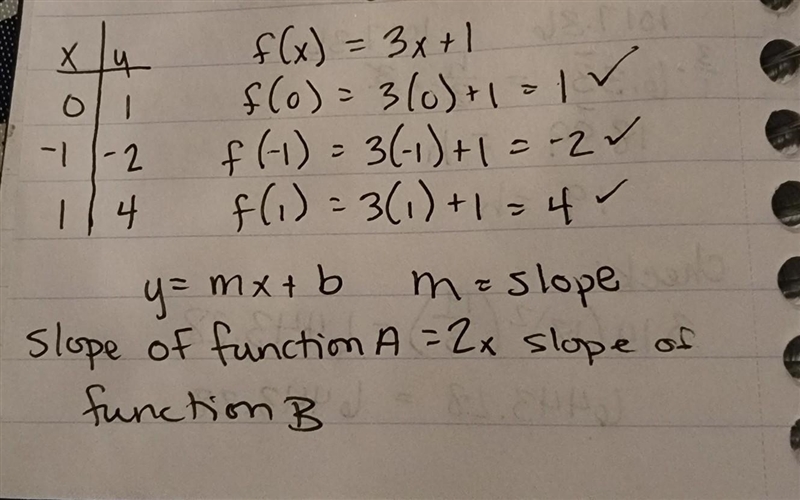 x y f(x) = 3x+1
0 1 f(0) = 3(0)+1 = 1 ✓
-1 -2 f(-1) = 3(-1)+1 = -2 ✓
1 4 f(1) = 3(1)+1 = 4 ✓
y = mx + b m = slope
slope of function A = 2x slope of
function B